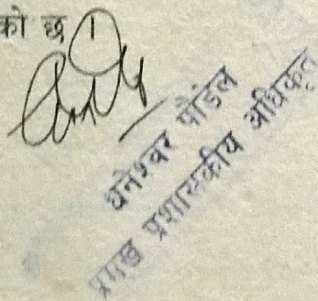 को छ ।
धनेश्वर पौडेल
प्रमुख प्रशासकीय अधिकृत